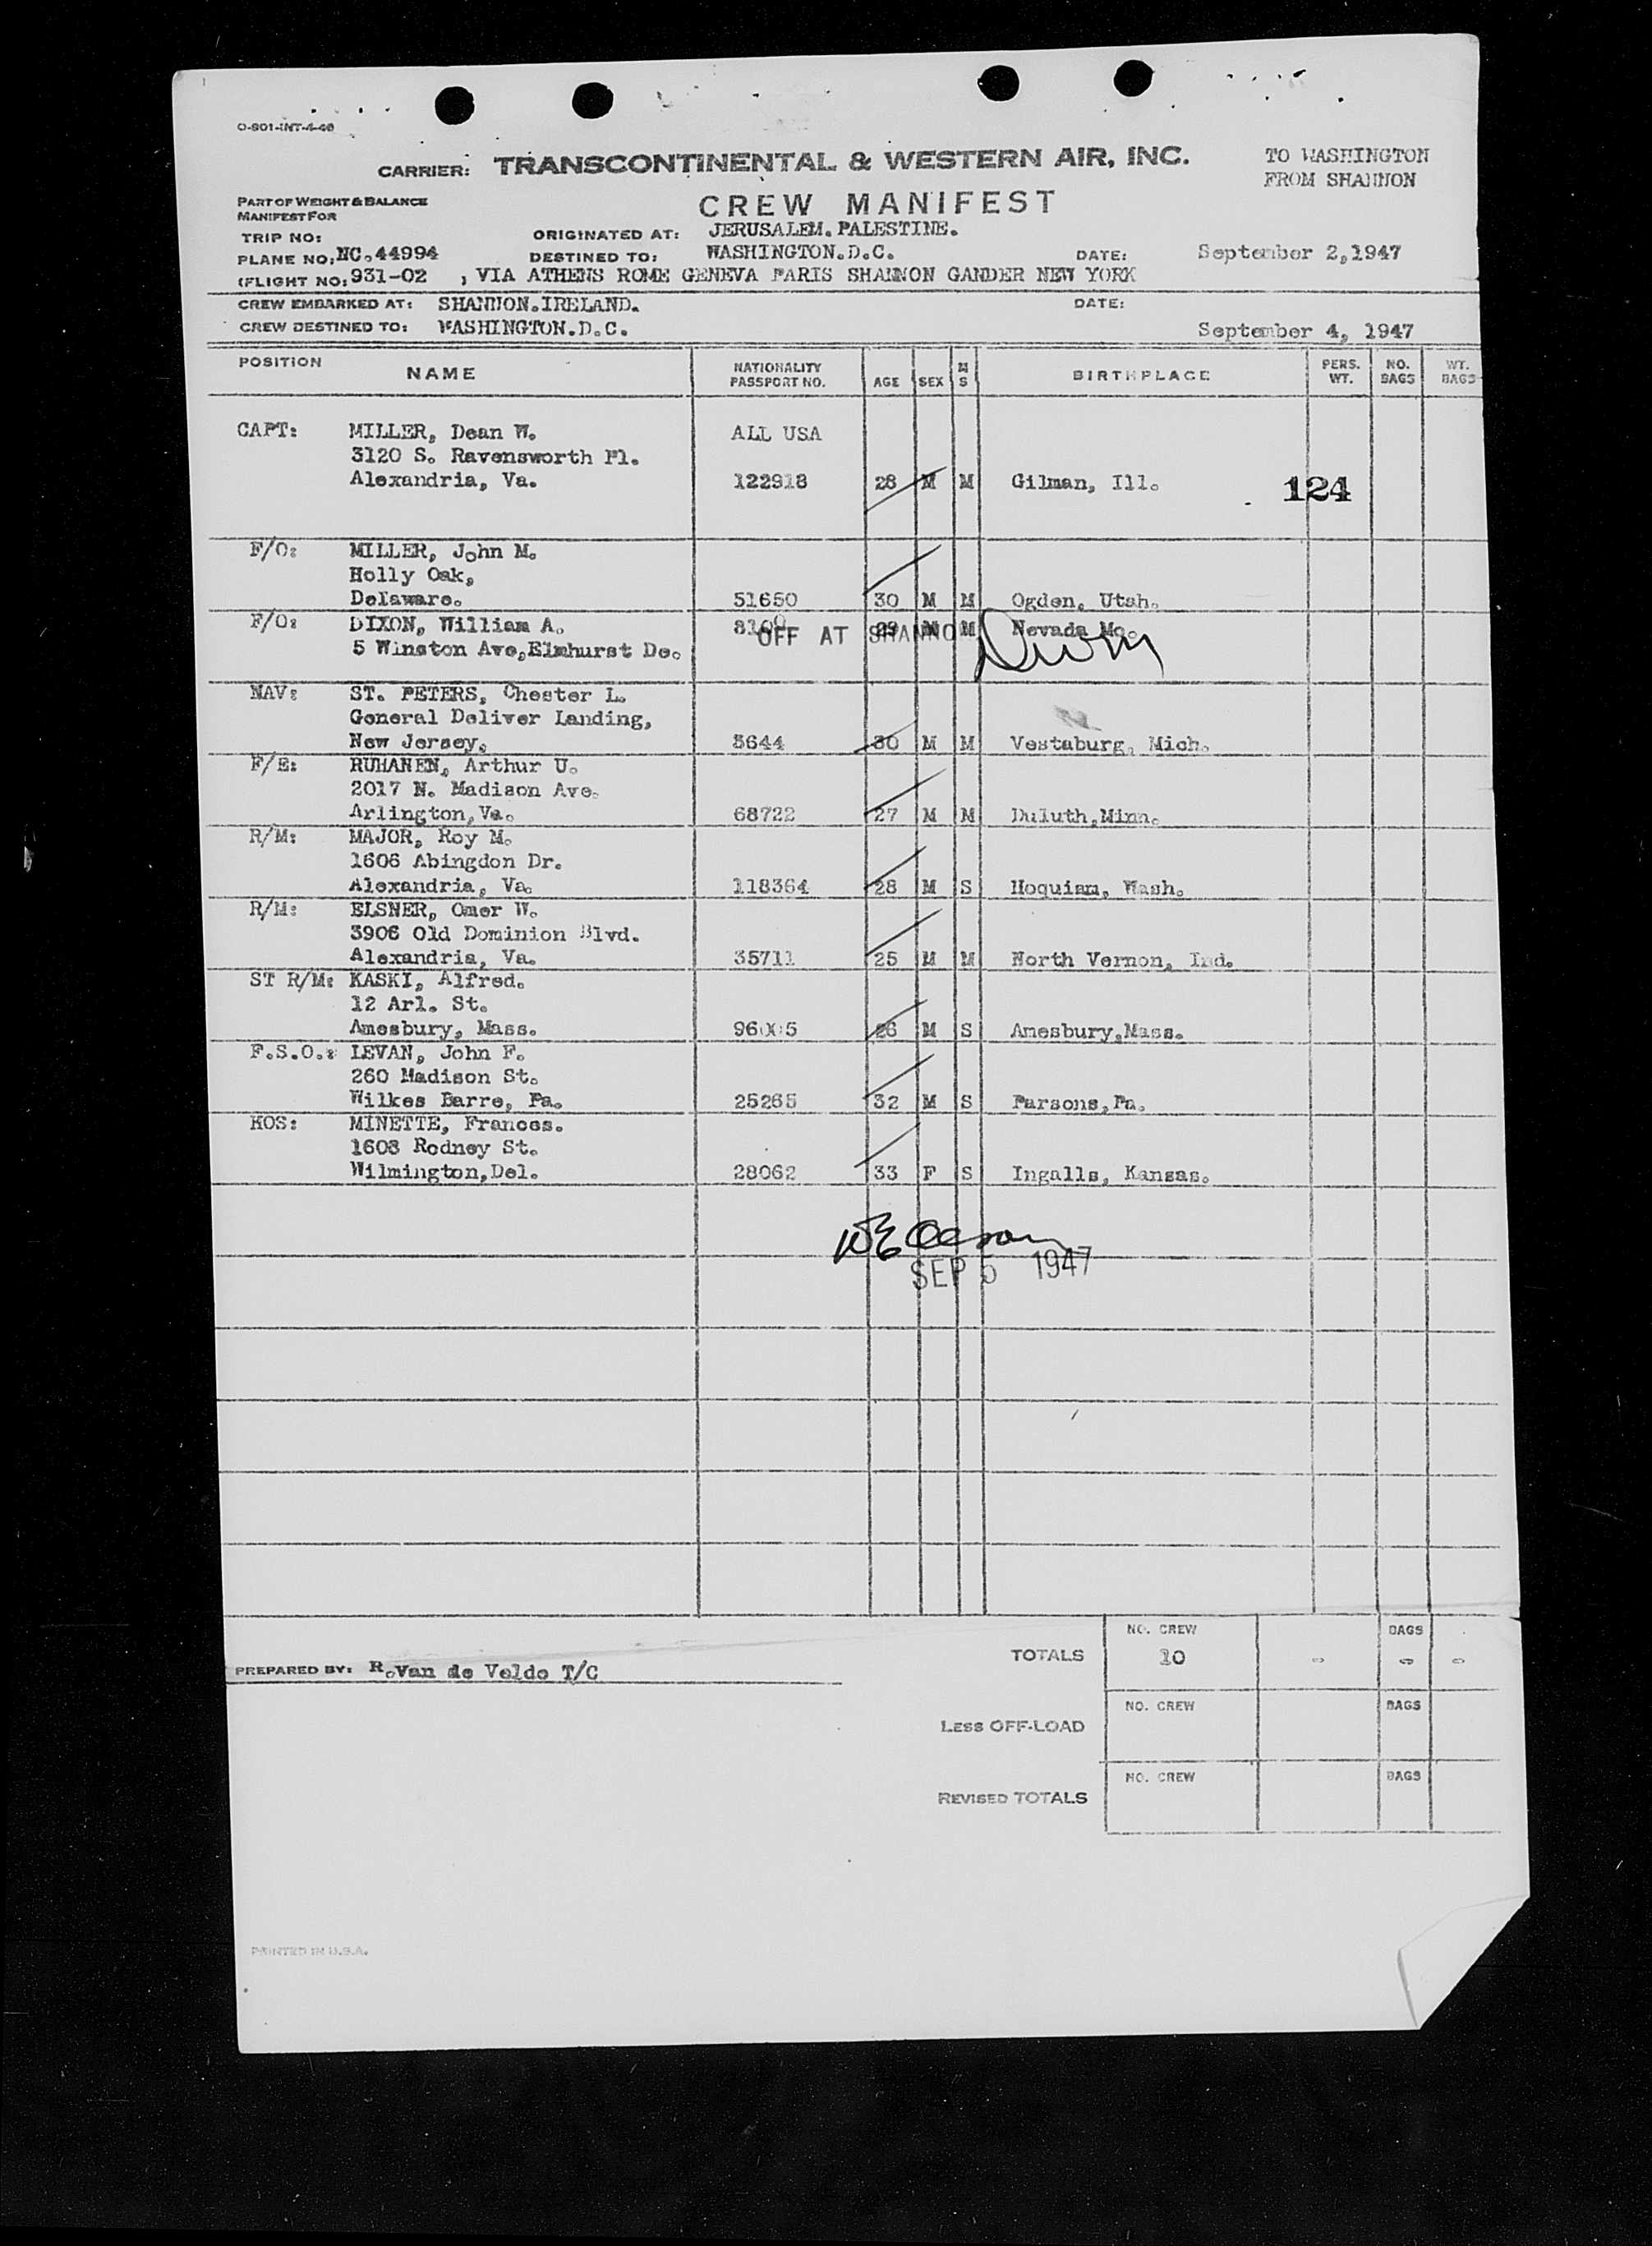 O-801-INT-4-46
CARRIER: TRANSCONTINENTAL & WESTERN AIR, INC.
TO WASHINGTON
FROM SHANNON
PART OF WEIGHT & BALANCE
MANIFEST FOR
CREW MANIFEST
TRIP NO: ORIGINATED AT: JERUSALEM.PALESTINE.
PLANE NO: NC.44994 DESTINED TO: WASHINGTON.D.C. DATE: September 2,1947
(FLIGHT NO: 931-02 , VIA ATHENS ROME GENEVA PARIS SHANNON GANDER NEW YORK
CREW EMBARKED AT: SHANNON.IRELAND. DATE:
CREW DESTINED TO: WASHINGTON.D.C. September 4, 1947
POSITION NAME NATIONALITY PASSPORT NO. AGE SEX M S BIRTHPLACE PERS. WT. NO. BAGS WT. BAGS
CAPT: MILLER, Dean W. ALL USA
3120 S. Ravensworth Pl.
Alexandria, Va. 122918 28 M M Gilman, Ill. 124
F/O: MILLER, John M.
Holly Oak,
Delaware. 51650 30 M M Ogden, Utah.
F/O: DIXON, William A. 29 M M Nevada Mo.
OFF AT SHANNON
5 Winston Ave,Elmhurst De.
NAV: ST. PETERS, Chester L.
General Deliver Landing,
New Jersey. 3644 30 M M Vestaburg, Mich.
F/E: RUHANEN, Arthur U.
2017 N. Madison Ave.
Arlington,Va. 68722 27 M M Duluth,Minn.
R/M: MAJOR, Roy M.
1606 Abingdon Dr.
Alexandria, Va. 118364 28 M S Hoquiam, Wash.
R/M: ELSNER, Omer W.
3906 Old Dominion Blvd.
Alexandria, Va. 35711 25 M M North Vernon, Ind.
ST R/M: KASKI, Alfred.
12 Arl. St.
Amesbury, Mass. 26 M S Amesbury,Mass.
F.S.O.: LEVAN, John F.
260 Madison St.
Wilkes Barre, Pa. 25265 32 M S Parsons,Pa.
HOS: MINETTE, Frances.
1608 Rodney St.
Wilmington,Del. 28062 33 F S Ingalls, Kansas.
SEP 5 1947
TOTALS NO. CREW 10 - BAGS - -
PREPARED BY: R.Van de Velde T/C
LESS OFF-LOAD NO. CREW BAGS
REVISED TOTALS NO. CREW BAGS
PRINTED IN U.S.A.